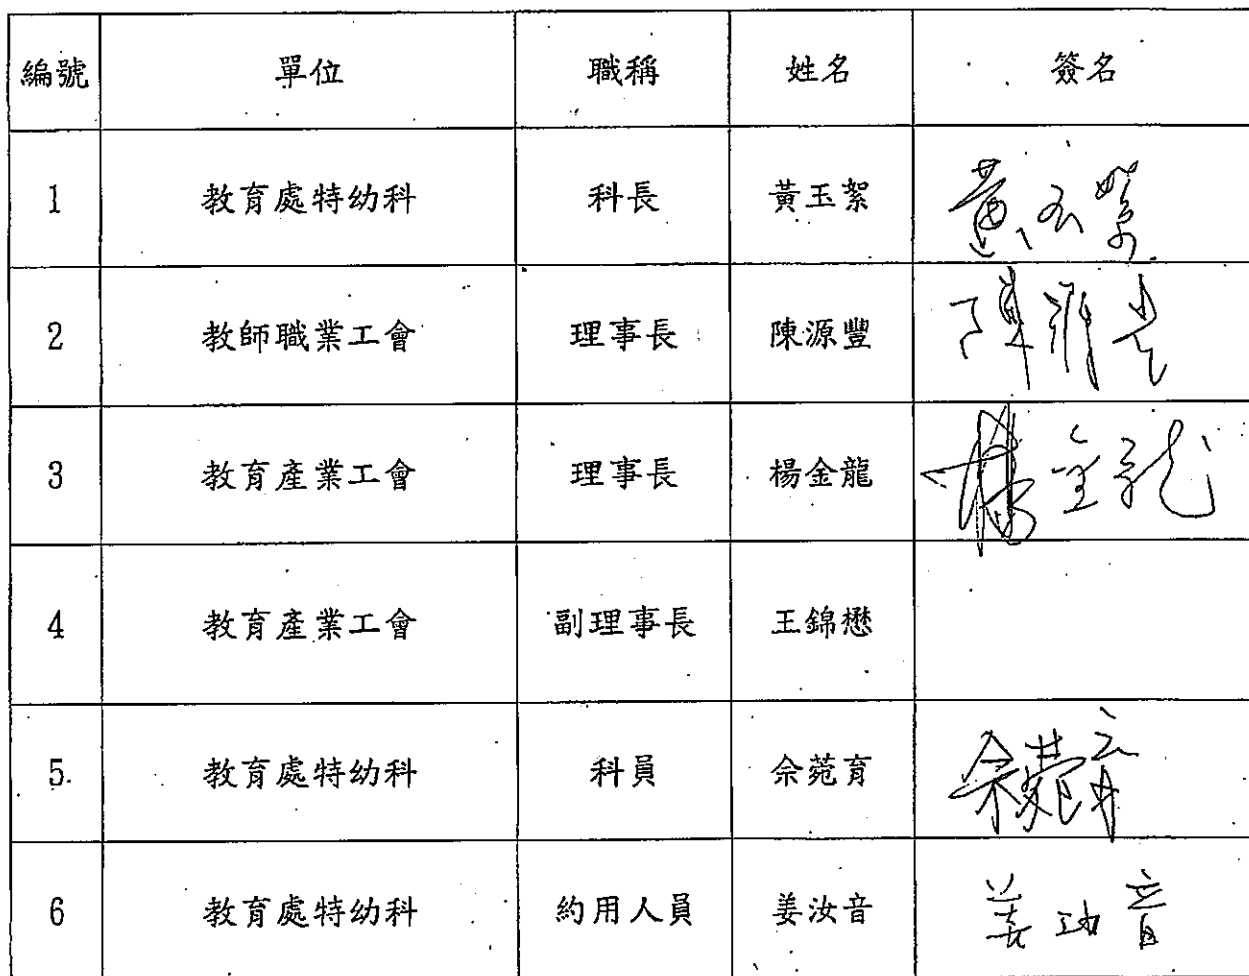 編號 單位 職稱 姓名 簽名
1 教育處特幼科 科長 黃玉絮 黃玉絮
2 教師職業工會 理事長 陳源豐
3 教育產業工會 理事長 楊金龍 楊金龍
4 教育產業工會 副理事長 王錦懋
5. 教育處特幼科 科員 佘菀育 佘菀育
6 教育處特幼科 約用人員 姜汝音 姜汝音